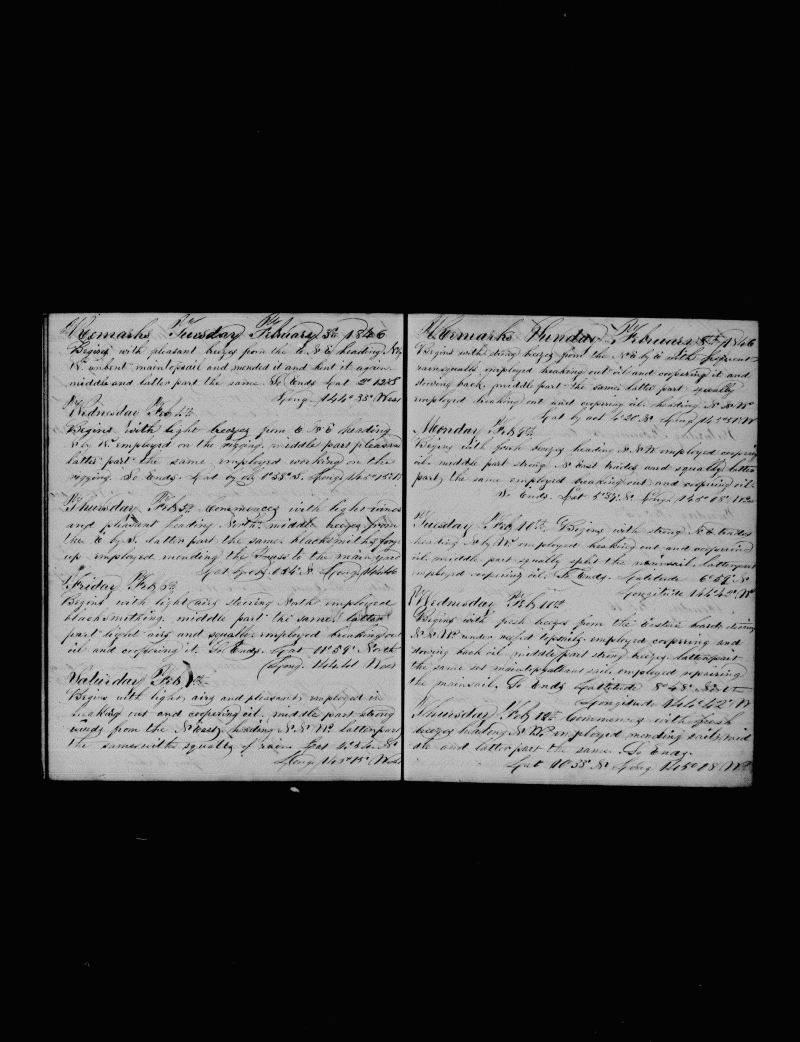 Remarks Tuesday February 3th 1846
Begins with pleasant breezes from the E N E heading N by
W. unbent maintopsail and mended it and bent it again
middle and latter part the same So Ends Lat 2° 12 S
Long 144° 35 West
Wednesday Feb 4th
Begins with light breezes from E N E heading
N by W. employed on the rigging. middle part pleasant
latter part the same employed working on the
rigging. So Ends. Lat by ob 0° 55 S. Long 145° 15 W
Thursday Feb 5th Commences with light winds
and pleasant heading North. middle breezes from
the E by S. latter part the same blacksmiths forge
up employed mending the Truss to the main yard
Lat by ob. 0 54 N Long 144 46
Friday Feb 6th
Begins with light airs steering North employed
blacksmithing. middle part the same. latter
part light airs and squalls employed breaking out
oil and coopering it So Ends. Lat 1° 59 North
Long. 144 41 West
Saturday Feb 7th
Begins with light airs and pleasant employed in
breaking out and coopering oil. middle part strong
winds from the N East heading N N W. latter part
the same with squalls of rain Lat 4 N
Long 145° 15 West
Remarks Sunday February 8th 1846
Begins with strong breezes from the N E by E with frequent
rainsqualls employed breaking out oil and coopering it and
stowing back. middle part the same latter part squally
employed breaking out and coopering oil. heading N N W
Lat by ob 4° 20 N Long 145 W
Monday Feb 9th
Begins with fresh breezes heading N N W employed coopering
oil. middle part strong N East trades and squally latter
part the same employed breaking out and coopering oil.
So Ends. Lat 5 N Long 145° 05 West
Tuesday Feb 10th Begins with strong N E trades
heading N by W. employed breaking out and coopering
oil. middle part squally split the mainsail. latter part
employed coopering oil. So Ends. Latitude 6° 59 N
Longitude 144 42 W
Wednesday Feb 11th
Begins with fresh breezes from the Eastern board steering
N N W. under reefed topsails employed coopering and
stowing back oil. middle part strong breezes. latter part
the same set maintopgallant sail. employed repairing
the mainsail. So Ends Latitude 8° 48 North
Longitude 144° 42 W
Thursday Feb 12th Commences with fresh
breezes heading N W. employed mending sails. mid
dle and latter part the same. So Ends.
Lat 10 55 N Long 145° 18 W